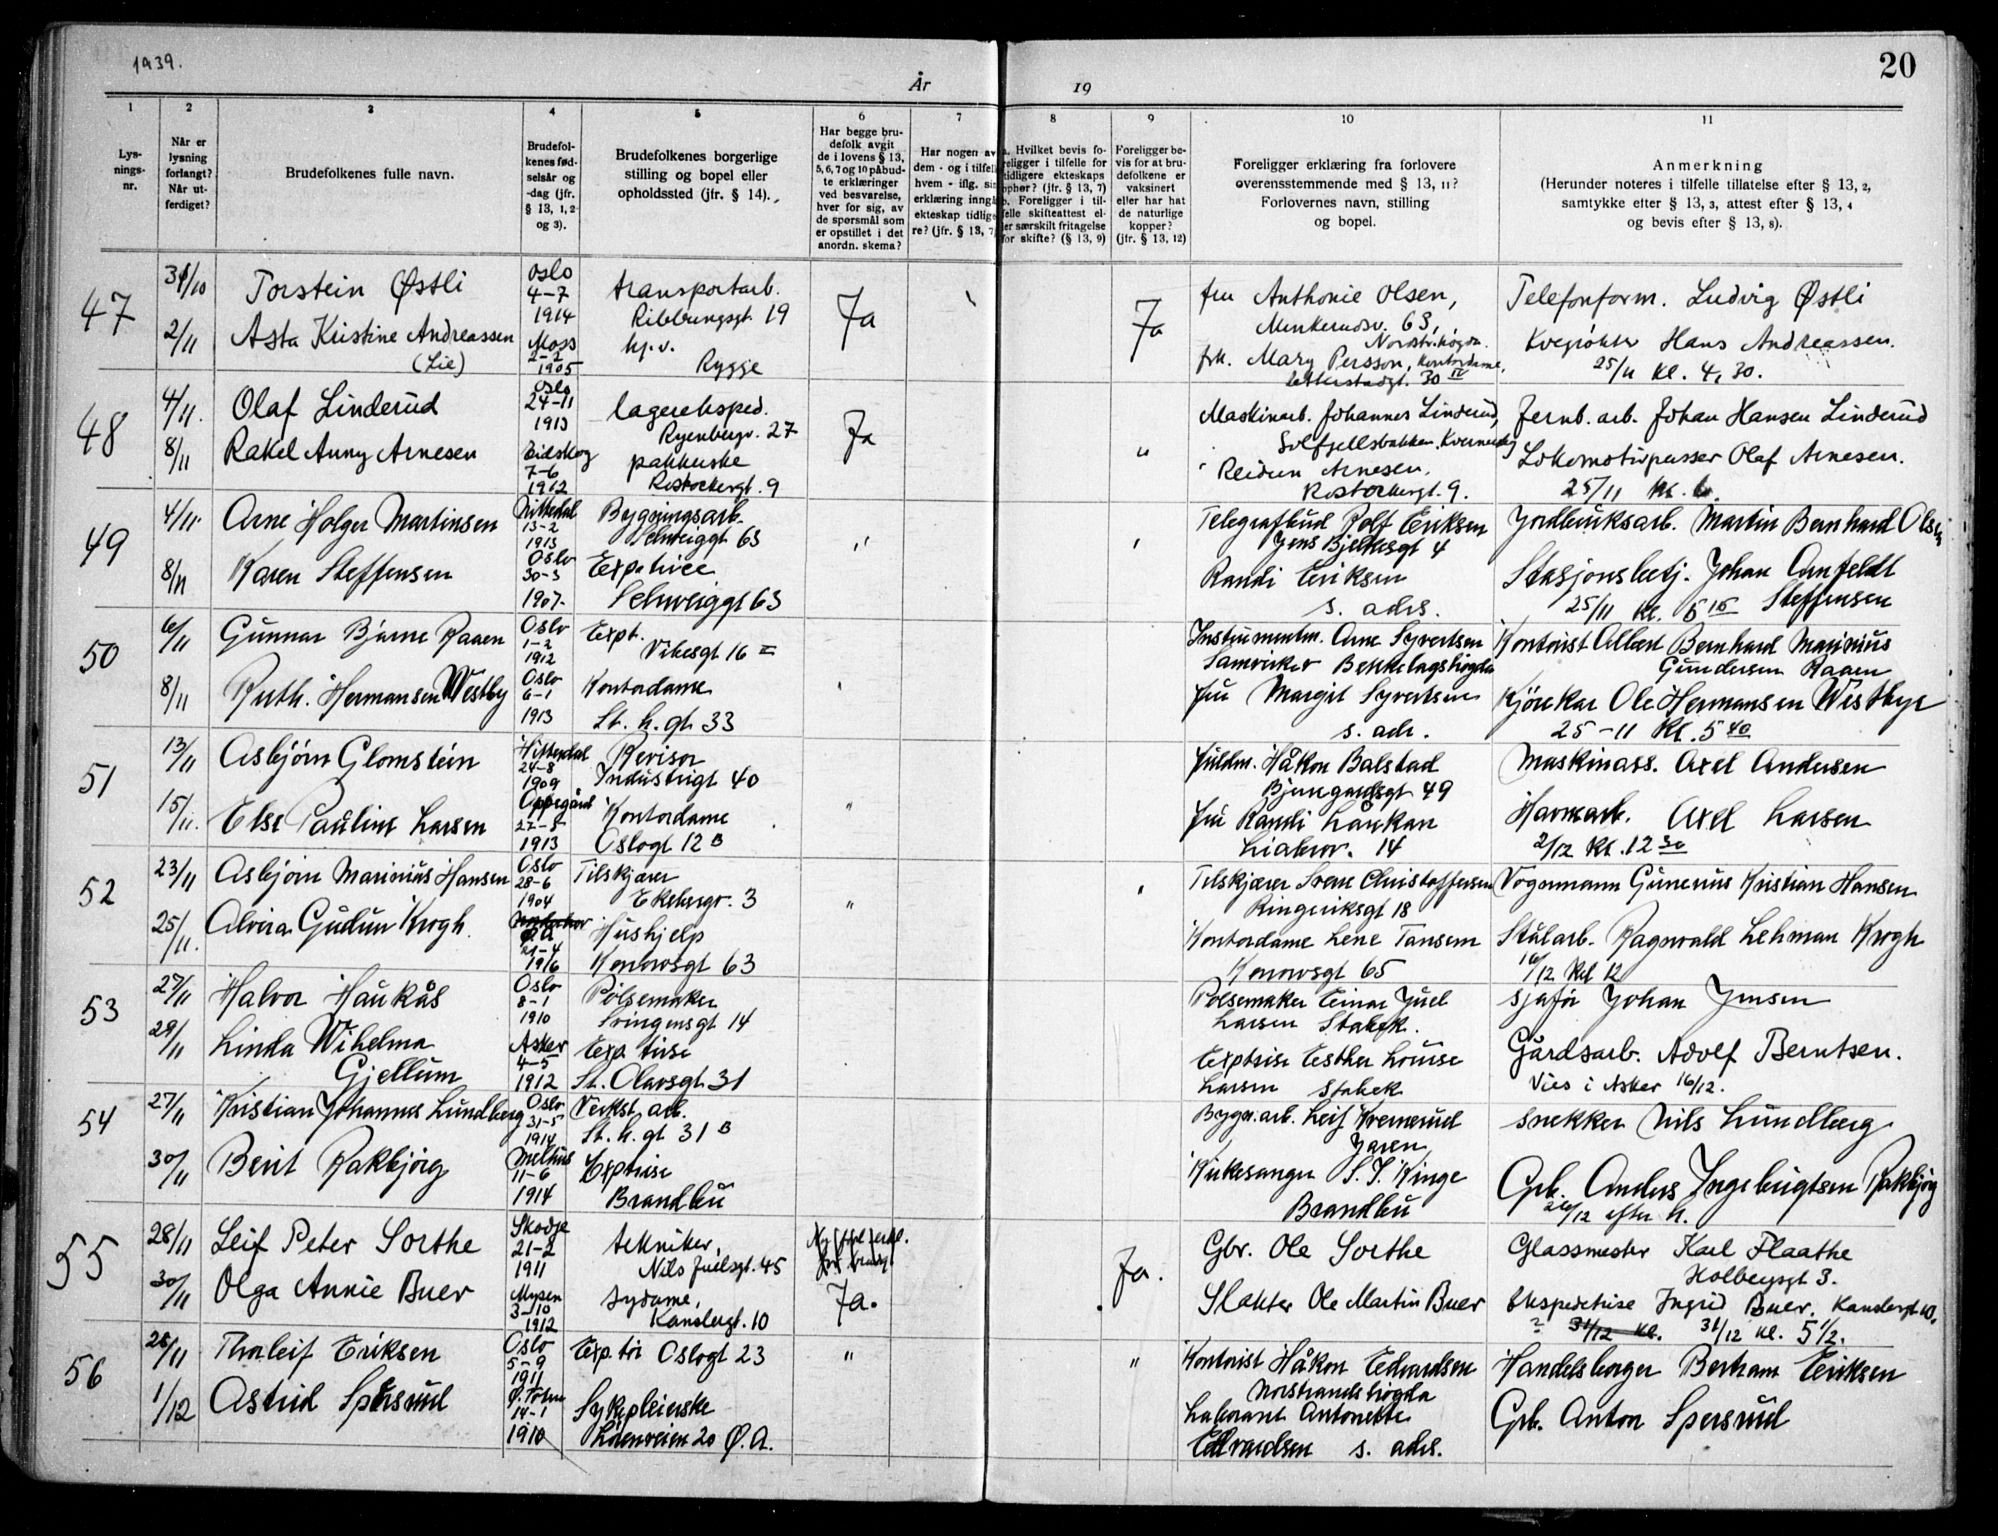 1939.
År
19
20
1
2
3
4
5
6
7
8
9
10
11
Lys-
nings-
nr.
Når er
lysning
forlangt?
Når ut-
ferdiget?
Brudefolkenes fulle navn.
Brudefol-
kenes fød-
selsår og
-dag (jfr.
§ 13, 1, 2
og 3).
Brudefolkenes borgerlige
stilling og bopel eller
opholdssted (jfr. § 14).
Har begge bru-
defolk avgit
de i lovens § 13,
5, 6, 7 og 10 påbud-
te erklæringer
ved besvarelse,
hver for sig, av
de spørsmål som
er opstillet i det
anordn. skema?
Har nogen av
dem - og i tilfell
hvem - iflg. sin
erklæring inngå
ekteskap tidlig
re? (jfr. § 13, 7
a. Hvilket bevis fo-
religger i tilfelle for
tidligere ekteskaps
ophør? (jfr. § 13, 7)
b. Foreligger i til-
felle skifteattest el-
ler særskilt fritagelse
for skifte? (§ 13, 9)
Foreligger be-
vis for at bru-
defolkene er
vaksinert
eller har hat
de naturlige
kopper?
(jfr. § 13, 12)
Foreligger erklæring fra forlovere
overensstemmende med § 13, 11?
Forlovernes navn, stilling
og bopel.
Anmerkning
(Herunder noteres i tilfelle tillatelse efter § 13, 2,
samtykke efter § 13, 3, attest efter § 13, 4
og bevis efter § 13, 8).
47
31/10
Torstein Østli
Oslo
4-7
1914
transportarb.
Ribbungsgt. 19
Ja
Ja
fru Anthonie Olsen,
Munkerudsv. 63,
Nordstr.høgda.
Telefonform. Ludvig Østli
2/11
Asta Kristine Andreassen
(Lie)
Moss
2-2
1905
hj.v.
Rygge
frk. Mary Persson, Kontordame,
30 IV
Kvegrøkter Hans Andreassen.
25/11 kl. 4,30.
48
4/11.
Olaf Linderud
Oslo
24-11
1913
lagereksped.
Ryenbergv. 27
Ja
"
Maskinarb. Johannes Linderud,
Solfjellsbakken
Jernb.arb. Johan Hansen Linderud
8/11
Rakel Anny Arnesen
Eidskog
7-6
1912
pakkerske
Rostockergt. 9
Reidun Arnesen.
Rostockergt. 9.
Lokomotivpusser Olaf Arnesen.
25/11 kl. 6.
49
4/11.
Arne Holger Martinsen
Nittedal
13-2
1913
Bygningsarb.
Schweiggt 63
"
Telegrafbud Rolf Eriksen
Jens Bjelkesgt 4
Jordbruksarb. Martin Bernhard Olsen
8/11
Karen Steffensen
Oslo
30-3
1907.
Exp.trice
Schweiggt 63
Randi Eriksen
s. adrs.
Stasjonsbetj. Johan Anfeldt
Steffensen
25/11 kl. 5 15
50
6/11
Gunnar Bjarne Raaen
Oslo
1-2
1912
Expt.
Vibesgt 16 II
Instrumentm. Arne Syvertsen
Bekkelagshøgda
Kontorist Albert Bernhard Marinius
Gundersen Raaen
8/11
Ruth. Hermansen Westby
Oslo
6-1
1913
Kontordame
St. h. gt 33
fru Margit Syvertsen
s. adr.
Kjørekar Ole Hermansen Westbye
25-11 kl. 5 40
51
13/11
Asbjörn Glomstein
Hitterdal
24-8
1909
Revisor
Industrigt 40
"
fuldm. Håkon Balstad
Bjungaardsgt 49
Maskinass. Axel Andersen
15/11.
Else Pauline Larsen
Oppegård
27-5
1913
Kontordame
Oslogt 12 B
fru Randi Laukan
Liabrov. 14
Havnearb. Axel Larsen
2/12 kl. 12 30
52
23/11
Asbjörn Marinius Hansen
Oslo
28-6
1904
Tilskjærer
Ekebergv. 3
"
Tilskjærer Svene Christoffersen
Ringeriksgt 18
Vognmann Gunerius Kristian Hansen
25/11.
Alvira Gudrun Krogh
Ø.A
21-4
1916
Hushjelp
Konowsgt 63
Kontordame Lene Tansem
Konowsgt 65
Stålarb. Ragnvald Lehman Krogh
16/12 kl 12
53
27/11
Halvor Haukås
Oslo
8-1
1910
Pølsemaker
Sringensgt 14
Pølsemaker Einar Juel
Larsen Stabek.
sjafør Johan Jensen
29/11
Linda Wihelma
Gjellum
Asker
4-5
1912
Exp.trise
St. Olavsgt 31
Exptrise Esther Louise
Larsen Stabek
Gårdsarb. Adolf Berntsen.
Vies i Asker 16/12.
54
27/11
Kristian Johannes Lundberg
Oslo
31-5
1914
Verkst.arb.
St. h. gt 31 B
Bygn.arb. Leif Kremerud
Jaren
snekker Nils Lundberg
30/11
Berit Rakbjörg
Melhus
11-6
1914
Exptrise
Brandbu
Kirkesanger S. S. Kinge
Brandbu
Grb. Anders Ingebrigtsen Rakbjörg
26/12 efter h.
55
28/11
Leif Peter Sorthe
Skodje
21-2
1911
tekniker,
Nils Juelsgt. 45
Ja.
Ja.
Gbr. Ole Sorthe
Glassmester Karl Flaathe
Holbergsgt 3.
30/11
Olga Annie Buer
Mysen
3-10
1912
sydame,
Kanslergt. 10
Slakter Ole Martin Buer
Ekspeditrise Ingrid Buer. Kanslergt 10.
31/12 kl. 31/12 kl. 5 1/2.
56
28/11
Thorleif Eriksen
Oslo
5-9
1911
Exp.tör Oslogt 23
"
"
Kontorist Håkon Edvardsen
Norstrandshøgda
Handelsborger Berham Eriksen
1/12
Astrid Spersrud
Ø. Toten
14-1
1910
Sykepleierske
Lørenveien 20 Ø.A.
Laborant Antonette
Edvardsen s. adrs.
Grb. Anton Spersrud